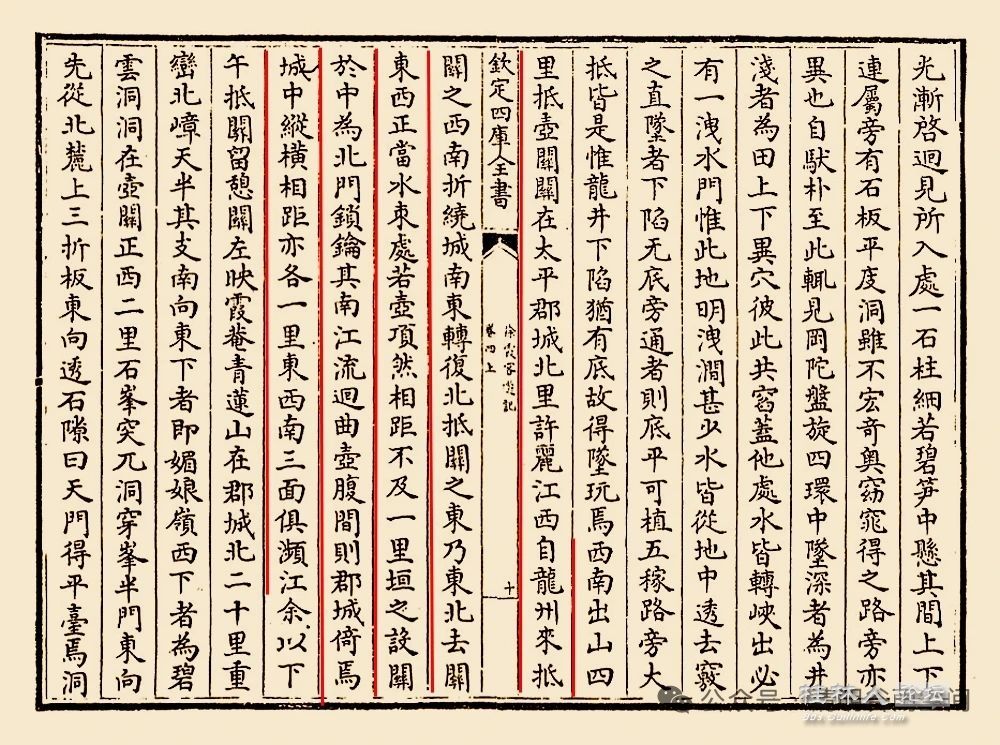 光漸啓迥見所入處一石柱細若碧笋中懸其間上下
連屬旁有石板平度洞雖不宏奇奥窈窕得之路旁亦
異也自馱朴至此輒見岡陀盤旋四環中墜深者為井
淺者為田上下異穴彼此共窞蓋他處水皆轉峽出必
有一洩水門惟此地明洩澗甚少水皆從地中透去竅
之直墜者下陷无底旁通者則底平可植五稼路旁大
抵皆是惟龍井下陷猶有底故得墜玩焉西南出山四
里抵壺關關在太平郡城北里許麗江西自龍州來抵
欽定四庫全書
徐霞客遊記
卷四上
十
關之西南折繞城南東轉復北抵關之東乃東北去關
東西正當水束處若壺項然相距不及一里垣之設關
於中為北門鎖鑰其南江流迴曲壺腹間則郡城倚焉
城中縱橫相距亦各一里東西南三面俱瀕江余以下
午抵關留憩關左映霞菴青蓮山在郡城北二十里重
巒北嶂天半其支南向東下者即媚娘嶺西下者為碧
雲洞洞在壺關正西二里石峯突兀洞穿峯半門東向
先從北麓上三折板東向透石隙曰天門得平臺焉洞
公众号